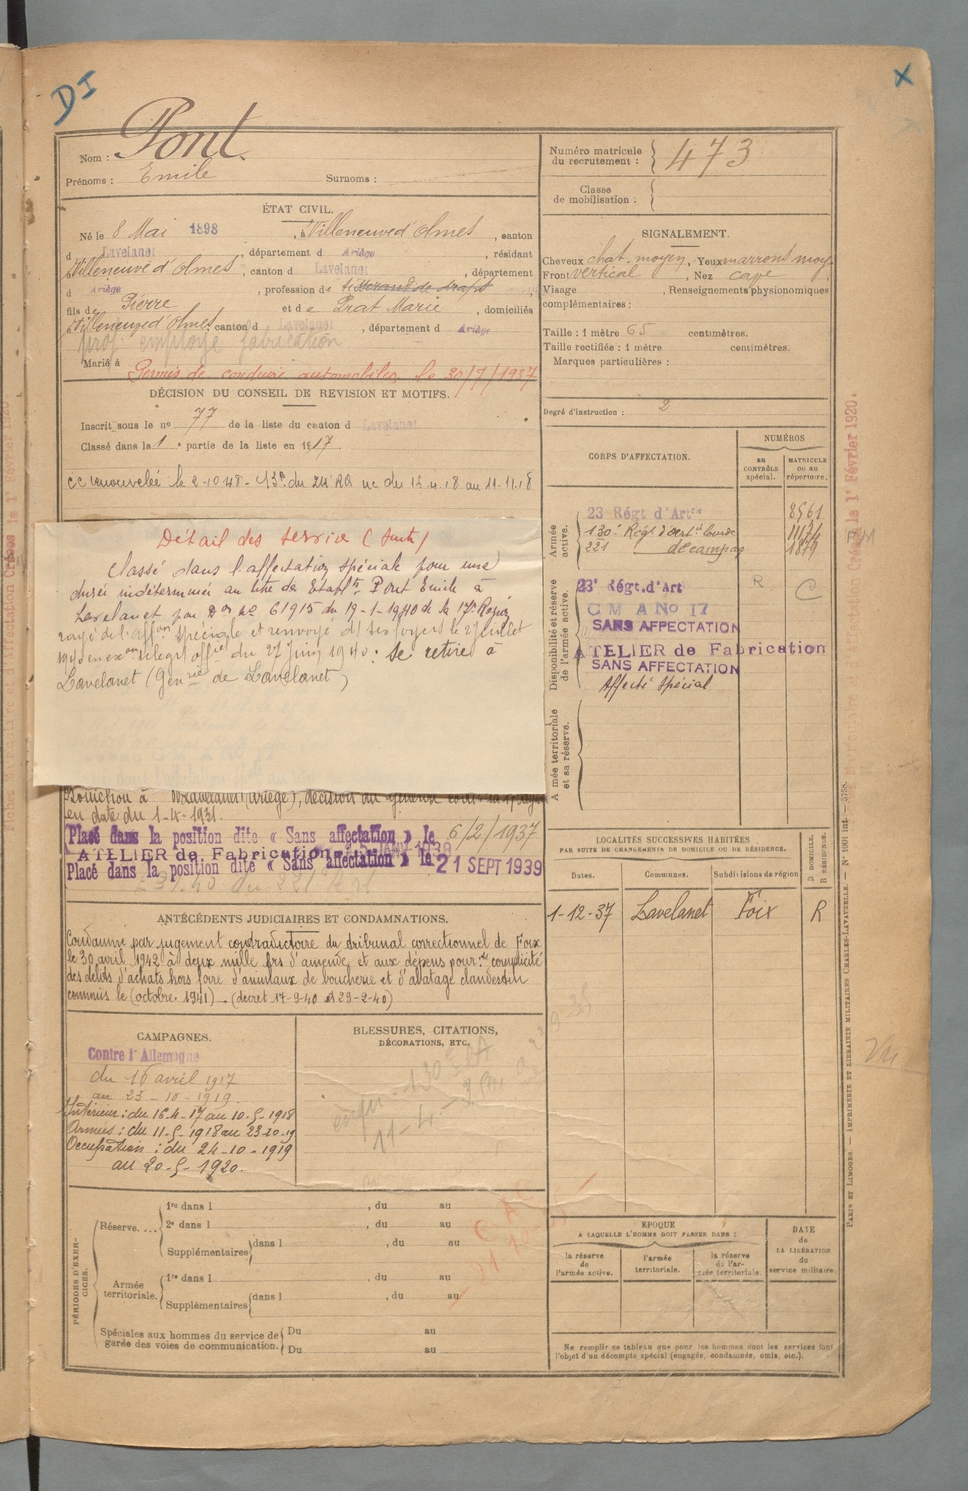 DI
X
Nom : Pont
Prénoms : Emile Surnoms :
Numéro matricule du recrutement : 473
Classe de mobilisation :
ÉTAT CIVIL.
Né le 8 Mai 1898, à Villeneuve d'Olmes, canton
d Lavelanet, département d Ariège, résidant
à Villeneuve d'Olmes, canton d Lavelanet, département
d Ariège, profession de tisserand de draps
fils de Pierre et de Prat Marie, domiciliés
à Villeneuve d'Olmes, canton d Lavelanet, département d Ariège
prof. employé fabrication
Marié à
Permis de conduire automobiles le 30/7/1937
SIGNALEMENT.
Cheveux chat. moyen, Yeux marrons moy.
Front vertical, Nez cave
Visage , Renseignements physionomiques
complémentaires :
Taille : 1 mètre 65 centimètres.
Taille rectifiée : 1 mètre centimètres.
Marques particulières :
Degré d'instruction : 2
DÉCISION DU CONSEIL DE REVISION ET MOTIFS.
Inscrit sous le no 77 de la liste du canton d Lavelanet
Classé dans la 1e partie de la liste en 1917.
CC renouvelée le 2-10-48 - 13e du 24 RA uc du 15.4.18 au 11.11.18
Détail des service (suite)
Classé dans l'affectation spéciale pour une
durée indéterminée au titre des Etabts Pont Emile à
Lavelanet par Don no 61915 du 19-1-1940 de la 17e Région
rayé de l'affon spéciale et renvoyé ds ses foyers le 2 juillet
1940 en exon télégr offiel du 27 juin 1940 : se retire à
Lavelanet (Genrie de Lavelanet)
en date du 1-4-1931.
Placé dans la position dite « Sans affectation » le 6/2/1937
ATELIER de Fabrication
Placé dans la position dite « Sans affectation » le 21 SEPT 1939
CORPS D'AFFECTATION.
NUMÉROS
au CONTRÔLE spécial.
MATRICULE ou au répertoire.
Armée active.
23 Régt d'Artie 8561
130e Régt d'art. lourde
221 de campag
Disponibilité et réserve de l'armée active.
23e Régt.d'Art R C
C M A No 17
SANS AFFECTATION
ATELIER de Fabrication
SANS AFFECTATION
Affecté Spécial
Armée territoriale et sa réserve.
LOCALITÉS SUCCESSIVES HABITÉES
PAR SUITE DE CHANGEMENTS DE DOMICILE OU DE RÉSIDENCE.
Dates. Communes. Subdivisions de région D DOMICILE. R RÉSIDENCE.
1-12-37 Lavelanet Foix R
ANTÉCÉDENTS JUDICIAIRES ET CONDAMNATIONS.
Condamné par jugement contradictoire du tribunal correctionnel de Foix
le 30 avril 1942 à deux mille frs d'amende et aux dépens pour : complicité
des délits d'achats hors foire d'animaux de boucherie et d'abatage clandestin
commis le (octobre 1941) — (decret 17-9-40 et 29-2-40)
CAMPAGNES.
Contre l'Allemagne
du 16 avril 1917
au 23-10-1919.
Intérieur : du 16-4-17 au 10-5-1918
Armées : du 11-5-1918 au 23-10-19
Occupation : du 24-10-1919
au 20-5-1920.
BLESSURES, CITATIONS, DÉCORATIONS, ETC.
PÉRIODES D'EXERCICES.
Réserve....
1re dans l , du au
2e dans l , du au
Supplémentaires dans l , du au
Armée territoriale.
1re dans l , du au
Supplémentaires dans l , du au
Spéciales aux hommes du service de garde des voies de communication.
Du au
Du au
EPOQUE
A LAQUELLE L'HOMME DOIT PASSER DANS :
la réserve de l'armée active.
l'armée territoriale.
la réserve de l'armée territoriale.
DATE de LA LIBÉRATION du service militaire.
Ne remplir ce tableau que pour les hommes dont les services font
l'objet d'un décompte spécial (engagés, condamnés, omis, etc.).
PARIS ET LIMOGES. — IMPRIMERIE ET LIBRAIRIE MILITAIRES CHARLES-LAVAUZELLE.